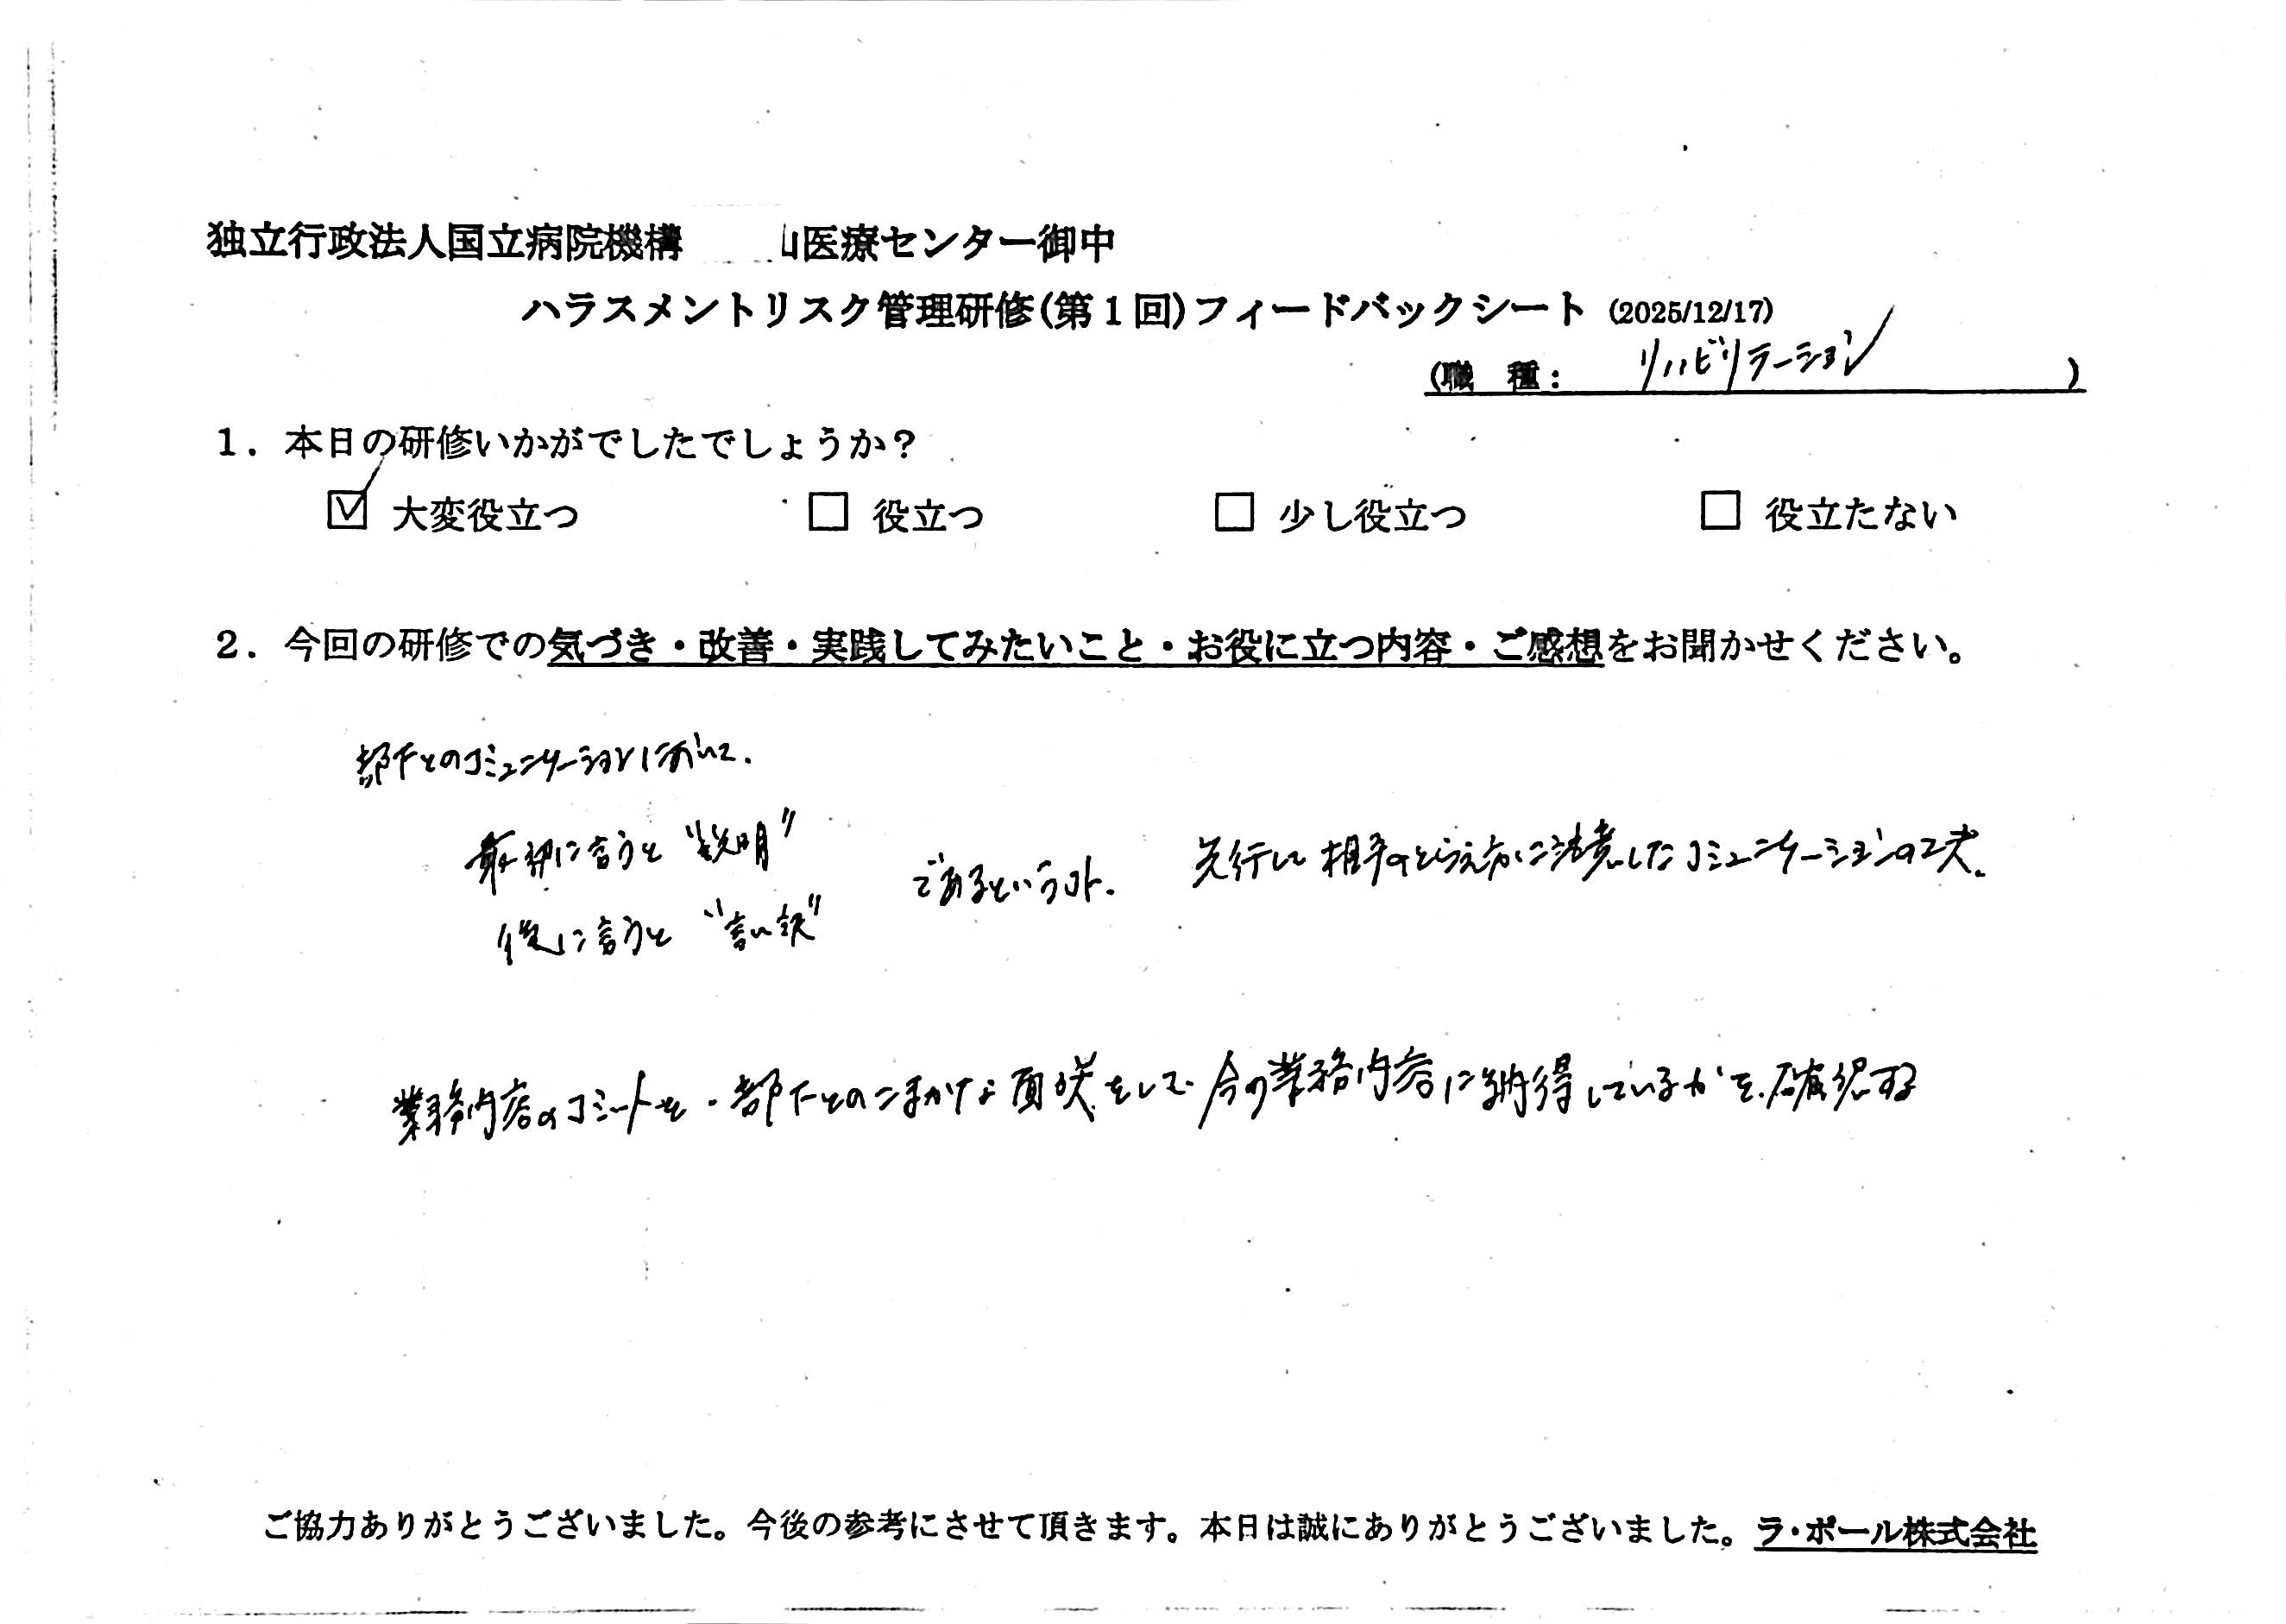 独立行政法人国立病院機構 医療センター御中
ハラスメントリスク管理研修(第1回)フィードバックシート (2025/12/17)
(職 種: リハビリテーション )
1. 本日の研修いかがでしたでしょうか?
☑ 大変役立つ □ 役立つ □ 少し役立つ □ 役立たない
2. 今回の研修での気づき・改善・実践してみたいこと・お役に立つ内容・ご感想をお聞かせください。
部下とのコミュニケーションにおいて、
最初に言うと "説明"
後に言うと "言い訳"
であるということ。 先行して相手のとらえ方に注意したコミュニケーションの工夫。
業務内容のコミットを・部下とのこまかな面談をして 今の業務内容に納得しているかを、確認する
ご協力ありがとうございました。今後の参考にさせて頂きます。本日は誠にありがとうございました。ラ・ポール株式会社